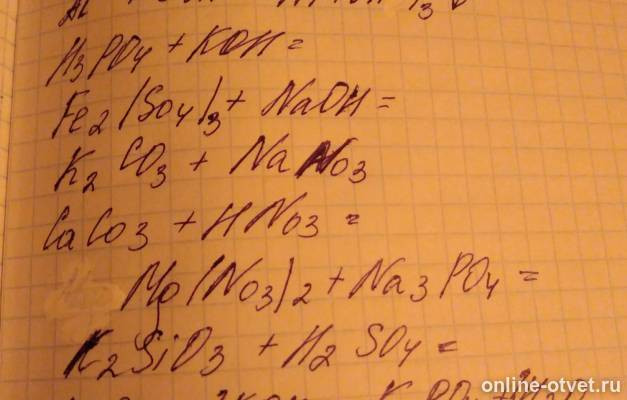 H3PO4 + KOH =
Fe2(SO4)3 + NaOH =
K2CO3 + NaNO3
CaCO3 + HNO3 =
Mg(NO3)2 + Na3PO4 =
K2SiO3 + H2SO4 =
online-otvet.ru